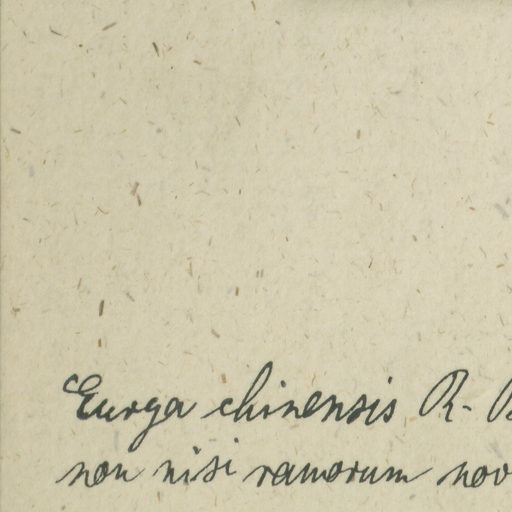 Eurya chinensis R. B
non nisi ramorum nov